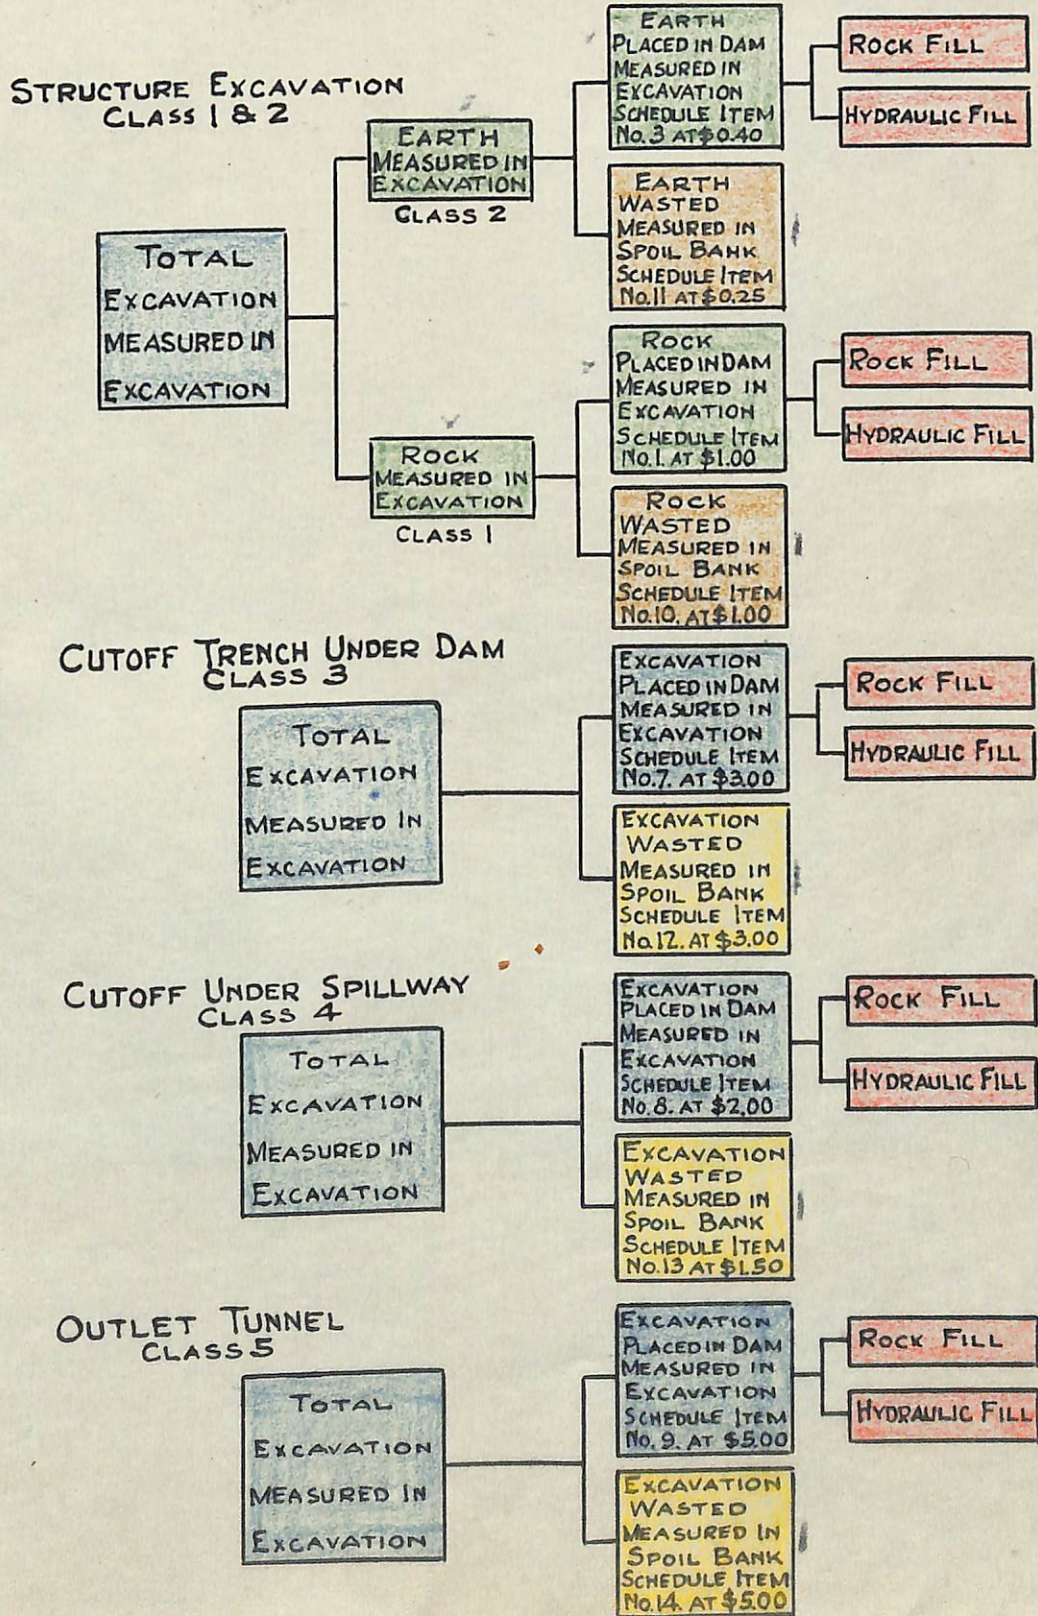 STRUCTURE EXCAVATION
CLASS 1 & 2
TOTAL
EXCAVATION
MEASURED IN
EXCAVATION
EARTH
MEASURED IN
EXCAVATION
CLASS 2
EARTH
PLACED IN DAM
MEASURED IN
EXCAVATION
SCHEDULE ITEM
No. 3 AT $0.40
ROCK FILL
HYDRAULIC FILL
EARTH
WASTED
MEASURED IN
SPOIL BANK
SCHEDULE ITEM
No. 11 AT $0.25
ROCK
MEASURED IN
EXCAVATION
CLASS 1
ROCK
PLACED IN DAM
MEASURED IN
EXCAVATION
SCHEDULE ITEM
No. 1. AT $1.00
ROCK FILL
HYDRAULIC FILL
ROCK
WASTED
MEASURED IN
SPOIL BANK
SCHEDULE ITEM
No. 10. AT $1.00
CUTOFF TRENCH UNDER DAM
CLASS 3
TOTAL
EXCAVATION
MEASURED IN
EXCAVATION
EXCAVATION
PLACED IN DAM
MEASURED IN
EXCAVATION
SCHEDULE ITEM
No. 7. AT $3.00
ROCK FILL
HYDRAULIC FILL
EXCAVATION
WASTED
MEASURED IN
SPOIL BANK
SCHEDULE ITEM
No. 12. AT $3.00
CUTOFF UNDER SPILLWAY
CLASS 4
TOTAL
EXCAVATION
MEASURED IN
EXCAVATION
EXCAVATION
PLACED IN DAM
MEASURED IN
EXCAVATION
SCHEDULE ITEM
No. 8. AT $2.00
ROCK FILL
HYDRAULIC FILL
EXCAVATION
WASTED
MEASURED IN
SPOIL BANK
SCHEDULE ITEM
No. 13 AT $1.50
OUTLET TUNNEL
CLASS 5
TOTAL
EXCAVATION
MEASURED IN
EXCAVATION
EXCAVATION
PLACED IN DAM
MEASURED IN
EXCAVATION
SCHEDULE ITEM
No. 9. AT $5.00
ROCK FILL
HYDRAULIC FILL
EXCAVATION
WASTED
MEASURED IN
SPOIL BANK
SCHEDULE ITEM
No. 14. AT $5.00